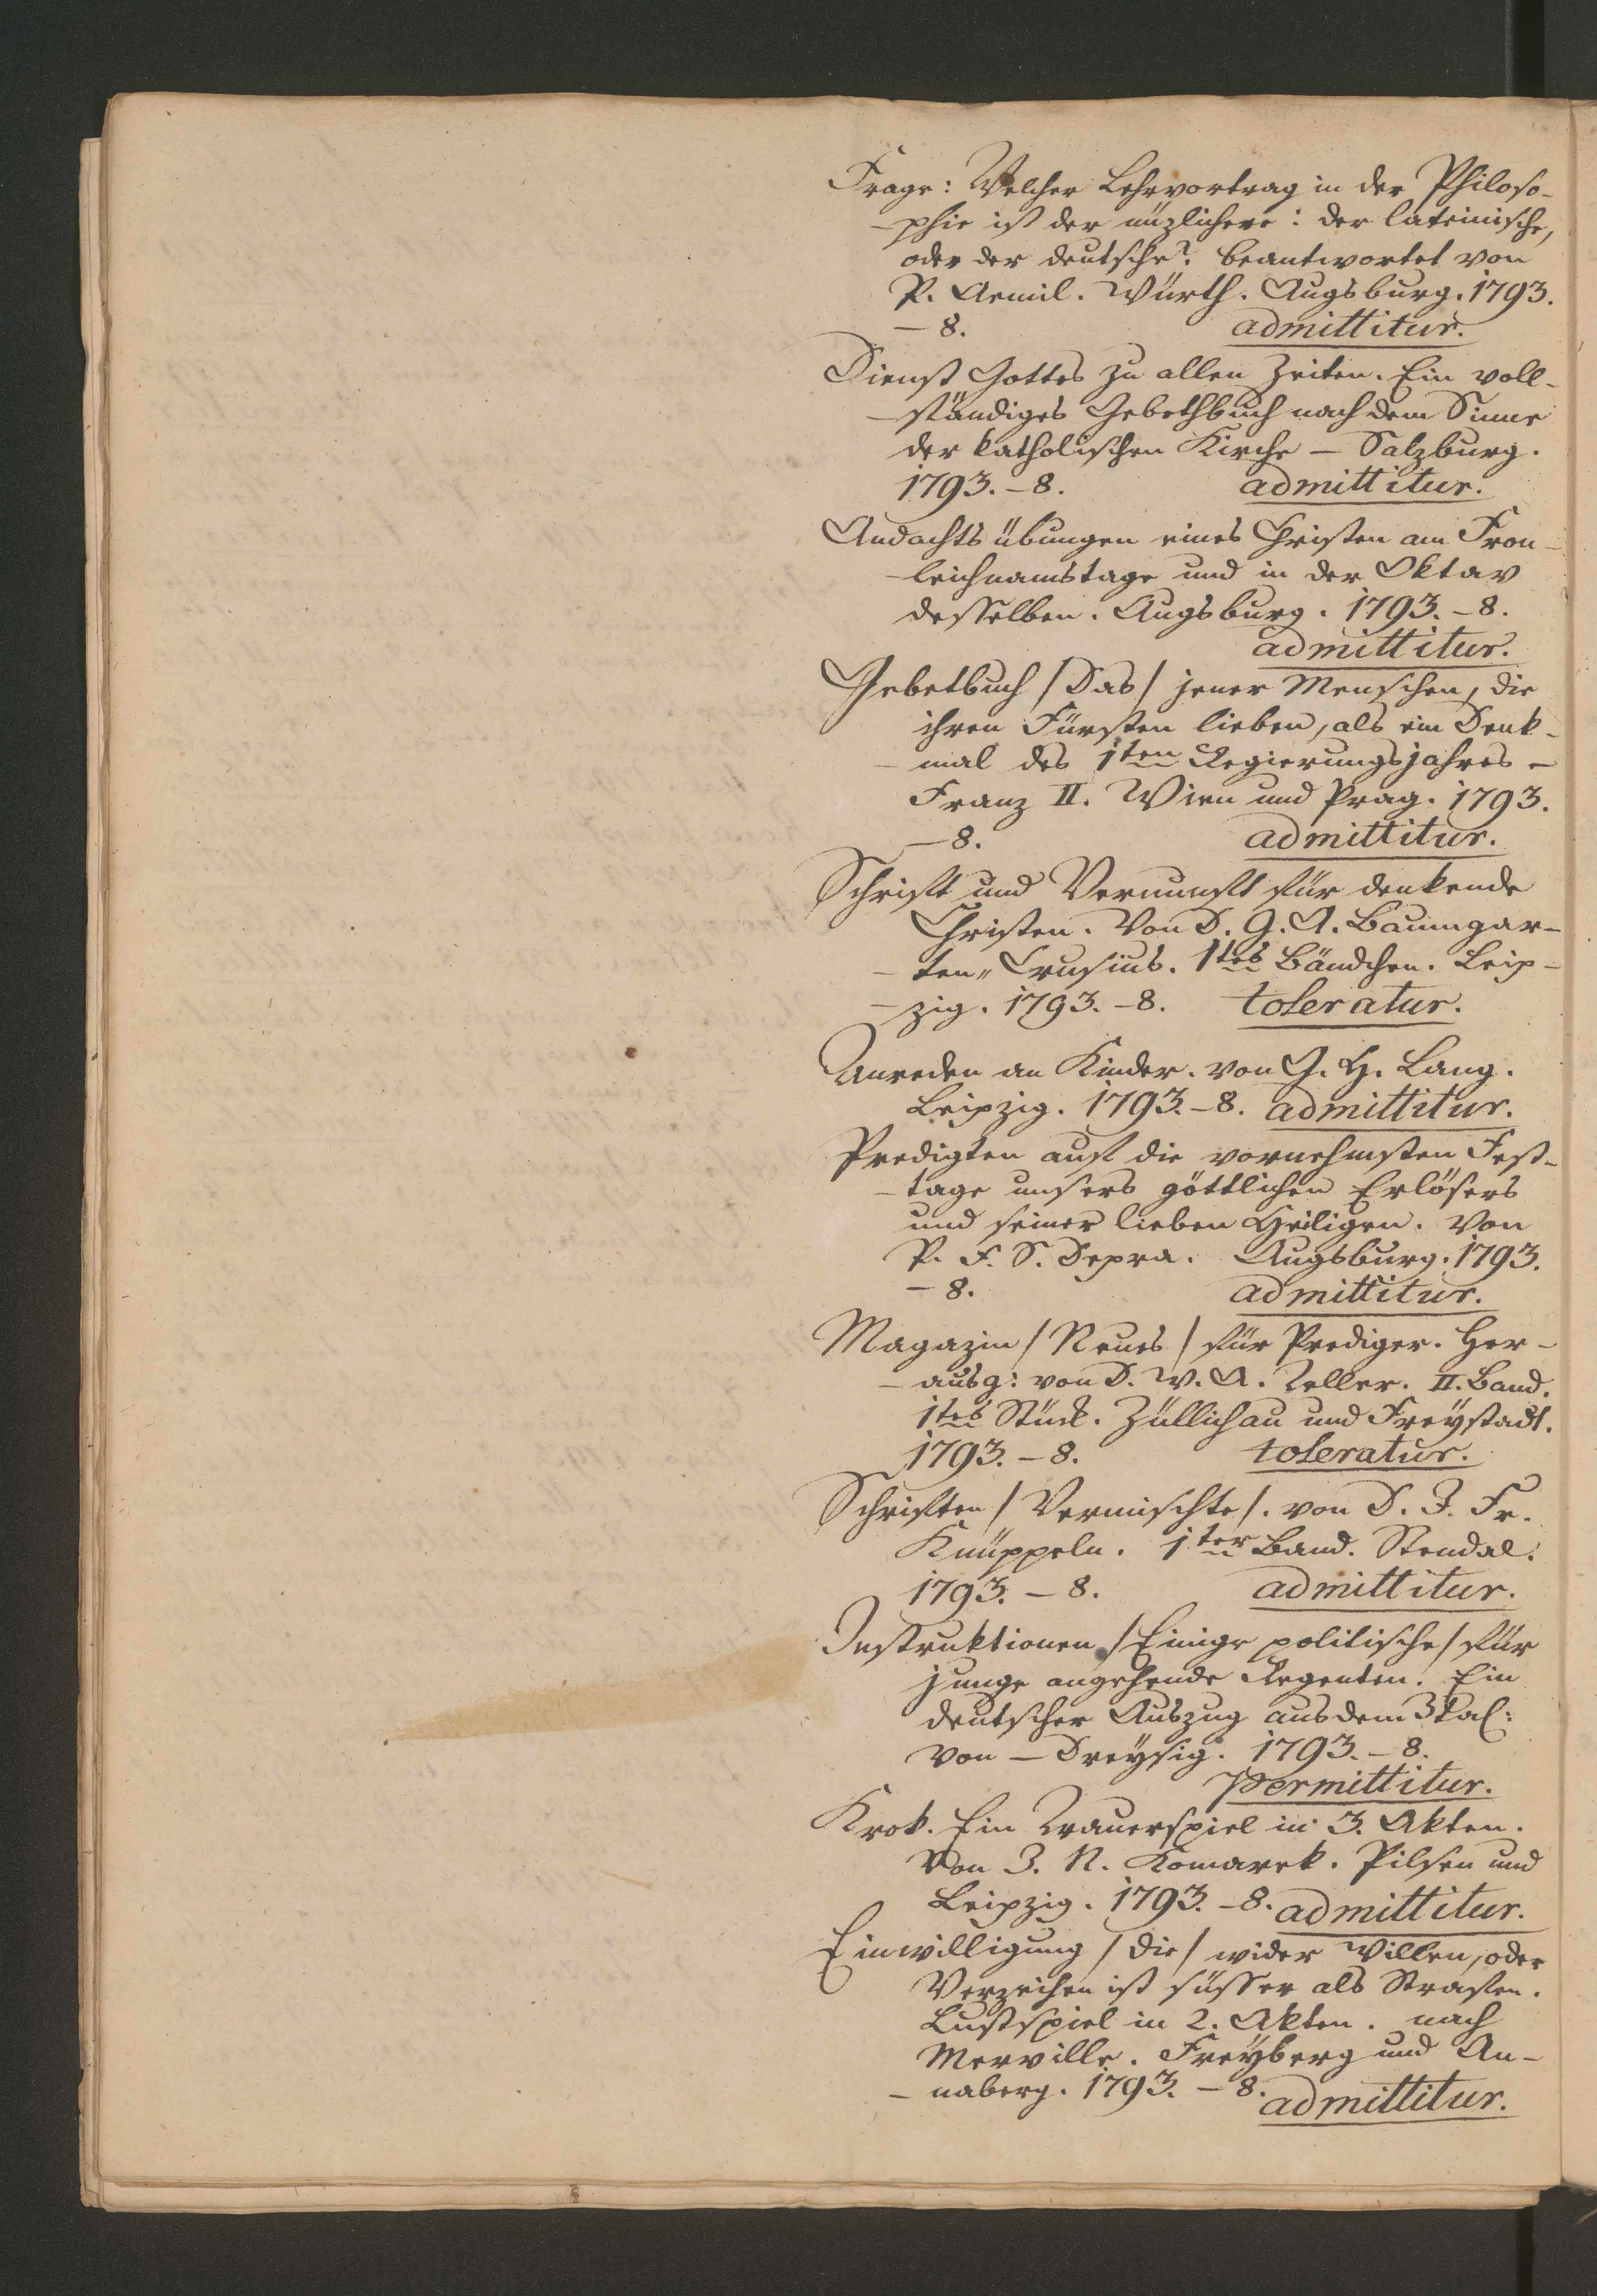 Frage: Welcher Lehrvortrag in der Philoso-
-phie ist der nüzlichere: der lateinische,
oder der deutsche? beantwortet von
P. Aemil. Würth. Augsburg. 1793.
-8. admittitur.
Dienst Gottes zu allen Zeiten. Ein voll-
-ständiges Gebethbuch nach dem Sinne
der katholischen Kirche - Salzburg.
1793.-8. admittitur.
Andachtsübungen eines Christen am Fron-
-leichnamstage und in der Oktav
desselben. Augsburg. 1793.-8.
admittitur.
Gebetbuch /Das/ jener Menschen, die
ihren Fürsten lieben, als ein Denk-
-mal des 1ten Regierungsjahres -
Franz II. Wien und Prag. 1793.
-8. admittitur.
Schrift und Vernunft für denkende
Christen. Von D. G. A. Baumgar-
-ten„ Crusius. 1tes Bändchen. Leip-
-zig. 1793.-8. toleratur.
Anreden an Kinder. von G. H. Lang.
Leipzig. 1793.-8. admittitur.
Predigten auf die vornehmsten Fest-
-tage unsers göttlichen Erlösers
und seiner lieben Heiligen. Von
P. F. S. Depra. Augsburg. 1793.
-8. admittitur.
Magazin /Neues/ für Prediger. Her-
-ausg: von D. W. A. Teller. II. Band.
1tes Stück. Züllichau und Freystadt.
1793.-8. toleratur.
Schriften /Vermischte/. von D. J. Fr.
Knüppeln. 1ter Band. Stendal.
1793.-8. admittitur.
Instruktionen /Einige politische/ für
junge angehende Regenten. Ein
deutscher Auszug aus dem Ital:
von - Dreysig. 1793.-8.
permittitur.
Krok. Ein Trauerspiel in 3. Akten.
Von J. N. Komarek. Pilsen und
Leipzig. 1793.-8. admittitur.
Einwilligung /die/ wider Willen, oder
Verzeihen ist süsser als Strafen.
Lustspiel in 2. Akten. nach
Merville. Freyberg und An-
-naberg. 1793.-8. admittitur.